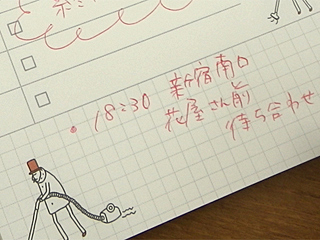 ・18:30 新宿南口
花屋さん前
待ち合わせ